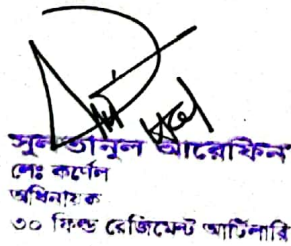 সুলতানুল আরেফিন
লেঃ কর্ণেল
অধিনায়ক
৩০ ফিল্ড রেজিমেন্ট আর্টিলারি